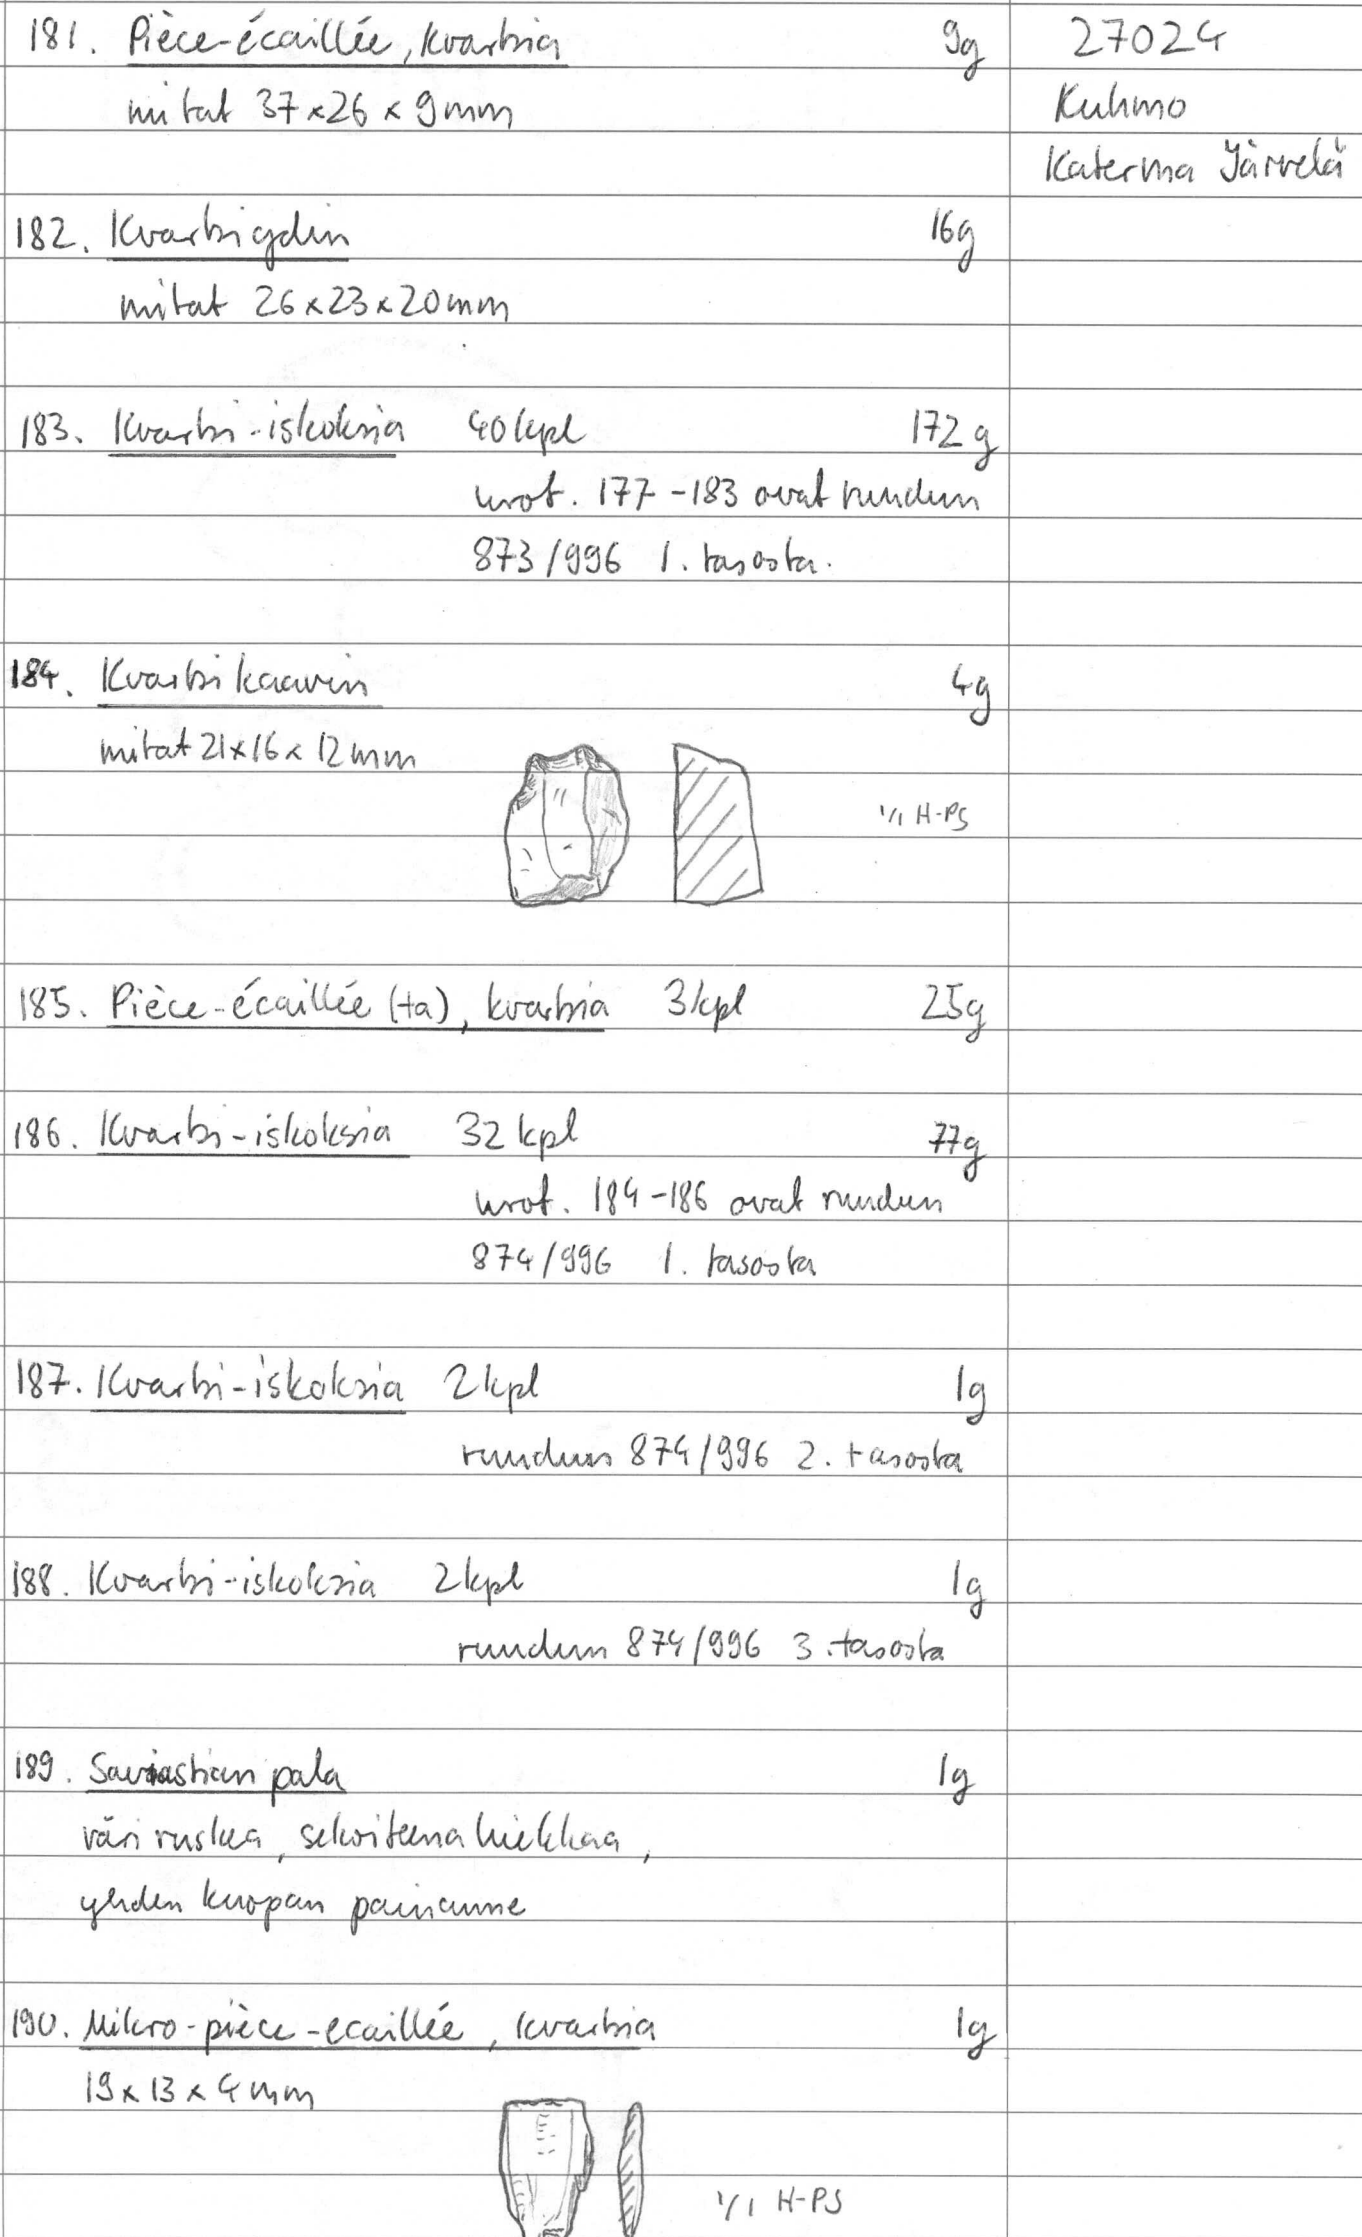 181. Pièce-écaillée, kvartsia 9g 27024
mitat 37x26x9mm Kuhmo
Katerma Järvelä
182. Kvartsiydin 16g
mitat 26x23x20mm
183. Kvartsi-iskoksia 40kpl 172g
nrot. 177-183 ovat ruudun
873/996 1. tasosta.
184. Kvartsikaavin 4g
mitat 21x16x12mm
1/1 H-PS
185. Pièce-écaillée (tä), kvartsia 3kpl 25g
186. Kvartsi-iskoksia 32kpl 77g
nrot. 184-186 ovat ruudun
874/996 1. tasosta
187. Kvartsi-iskoksia 2kpl 1g
ruudun 874/996 2. tasosta
188. Kvartsi-iskoksia 2kpl 1g
ruudun 874/996 3. tasosta
189. Saviastian pala 1g
väri ruskea, sekoitteena hiekkaa,
yhden kuopan painanne
190. Mikro-pièce-ecaillée, kvartsia 1g
19x13x4mm
1/1 H-PS